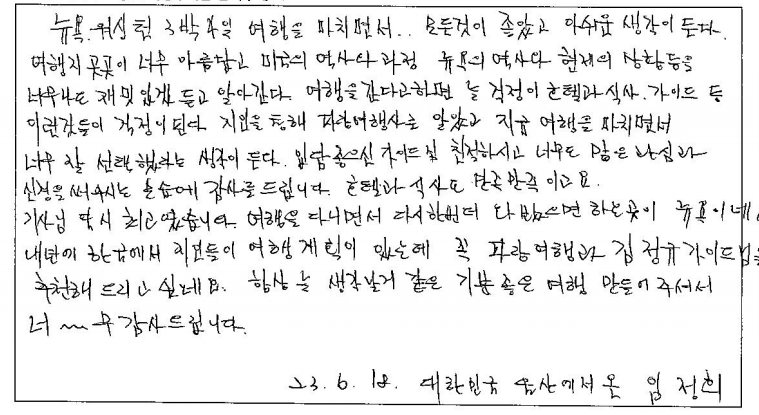 뉴욕. 워싱턴 3박4일 여행을 마치면서.. 모든것이 좋았고 아쉬운 생각이 든다.
여행지 곳곳이 너무 아름답고 미국의 역사와 과정 뉴욕의 역사와 현재의 상황등을
너무나도 재밋있게 듣고 알아간다. 여행을 간다고하면 늘 걱정이 호텔과 식사. 가이드 등
이런것들이 걱정이 된다 지인을 통해 파랑여행사를 알았고 지금 여행을 마치면서
너무 잘 선택했다는 생각이 든다. 입담 좋으신 가이드님 친절하시고 너무도 많은 관심과
신경을 써주시는 모습에 감사를 드립니다. 호텔과 식사도 만족만족 이고요.
기사님 역시 최고였습니다. 여행을 다니면서 다시한번더 와 봤으면 하는곳이 뉴욕이네요
내년에 한국에서 지인들이 여행계획이 있는데 꼭 파랑여행과 김정규가이드님을
추천해 드리고 싶네요. 항상 늘 생각날거 같은 기분 좋은 여행 만들어 주셔서
너~~무 감사드립니다.
23. 6. 18. 대한민국 울산에서 온 임정희